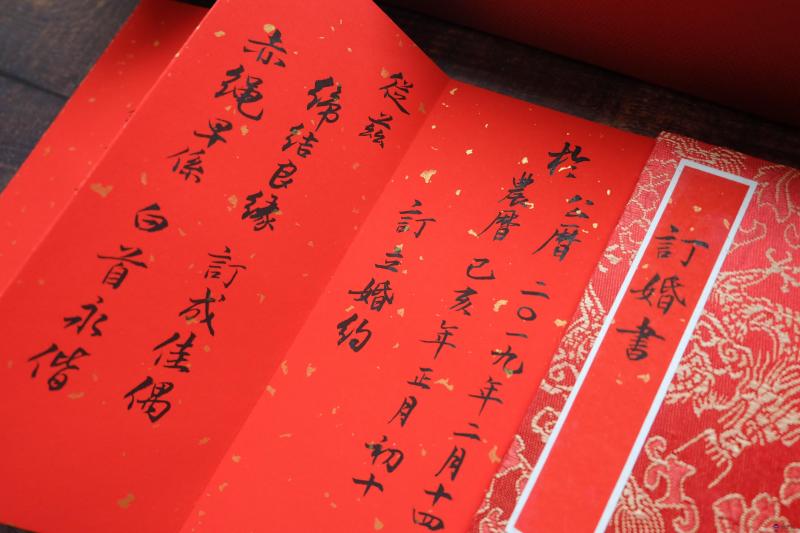 訂婚書
於公曆二〇一九年二月十四
農曆己亥年正月初十
訂立婚約
從茲
締結良緣 訂成佳偶
赤繩早係 白首永偕